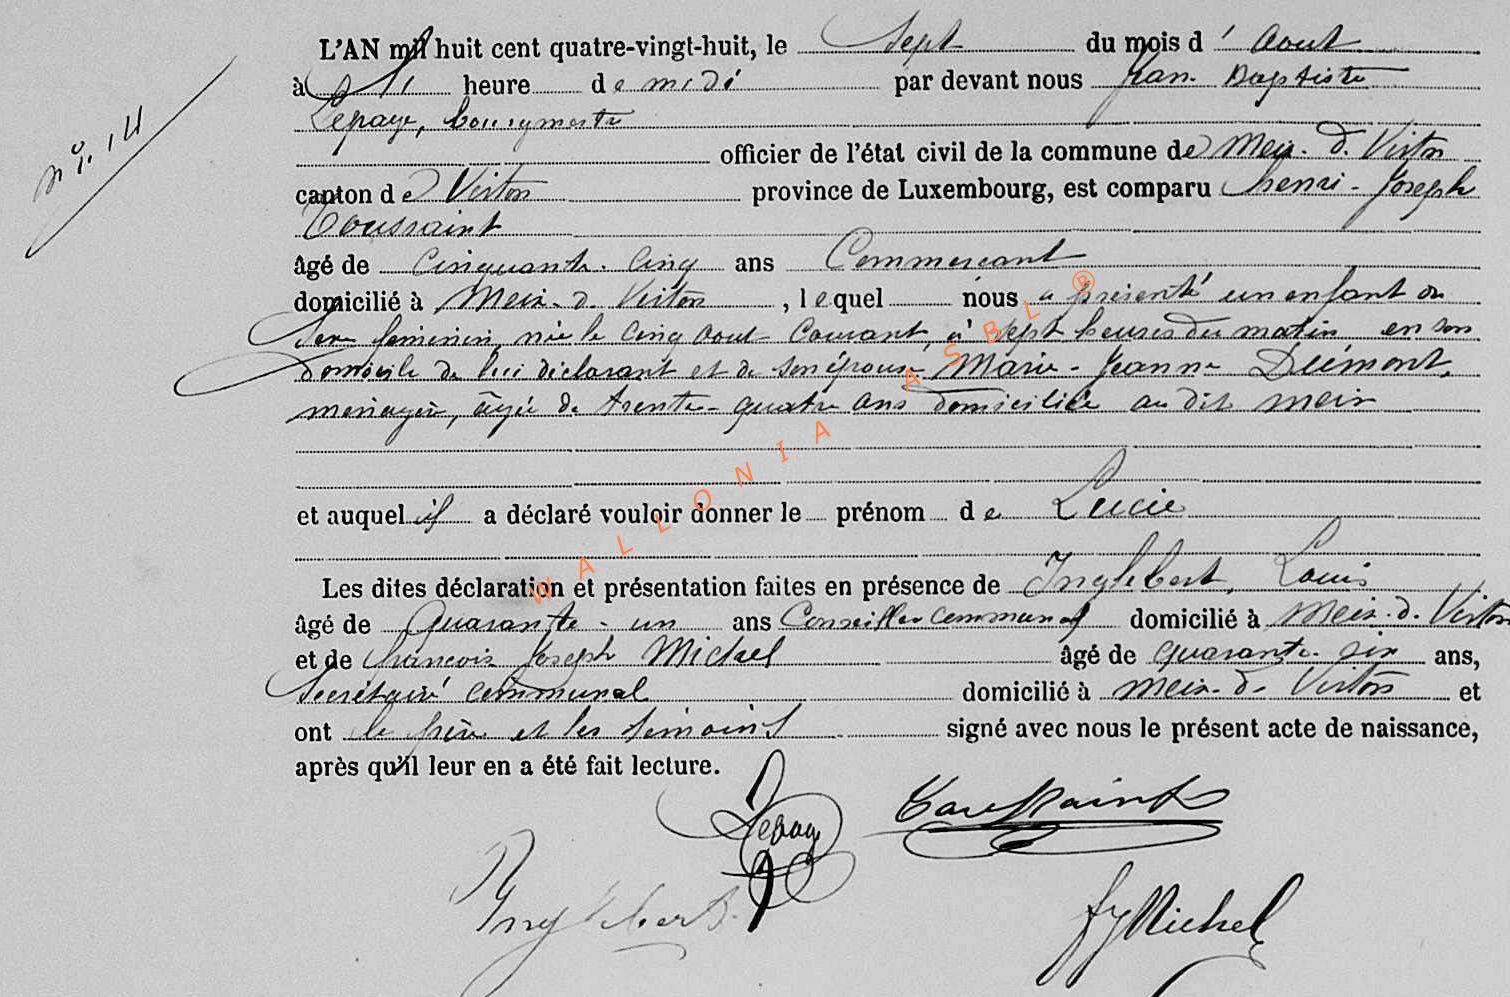 nº. 14
L'AN mil huit cent quatre-vingt-huit, le Sept du mois d' Aout
à 11 heure de midi par devant nous Jean Baptiste
Lepage, bourgmestre
officier de l'état civil de la commune de Meix. d. Virton
canton de Virton province de Luxembourg, est comparu henri - Joseph
Toussaint
âgé de Cinquante. Cinq ans Commercant
domicilié à Meix. d. Virton, lequel nous a présenté un enfant du
Sexe feminin, née le Cinq aout Courant, à sept heures du matin en son
domicile de lui déclarant et de son épouse Marie - Jeanne Dumont,
menagère, agée de trente - quatre ans domiciliée au dit meix
et auquel il a déclaré vouloir donner le prénom de Lucie
Les dites déclaration et présentation faites en présence de Inglebert, Louis
âgé de Quarante - un ans Conseiller communal domicilié à Meix. d. Virton
et de francois Joseph Michel âgé de quarante six ans,
Secrétaire communal domicilié à Meix. d. Virton et
ont le père et les témoins signé avec nous le présent acte de naissance,
après qu'il leur en a été fait lecture.
Lepage Toussaint
Inglebert. fj Michel
WALLONIA ASBL ®